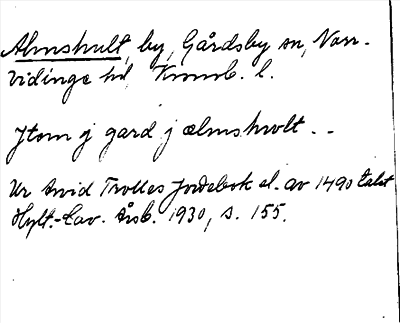 Almshult, by, Gårdsby sn, Norr-
vidinge hd, Kronob. l.
Jtom j gard j ælmshwlt . .
Ur Arvid Trolles Jordebok sl. av 1490 talet
Hylt.-Cav. Årsb. 1930, s. 155.